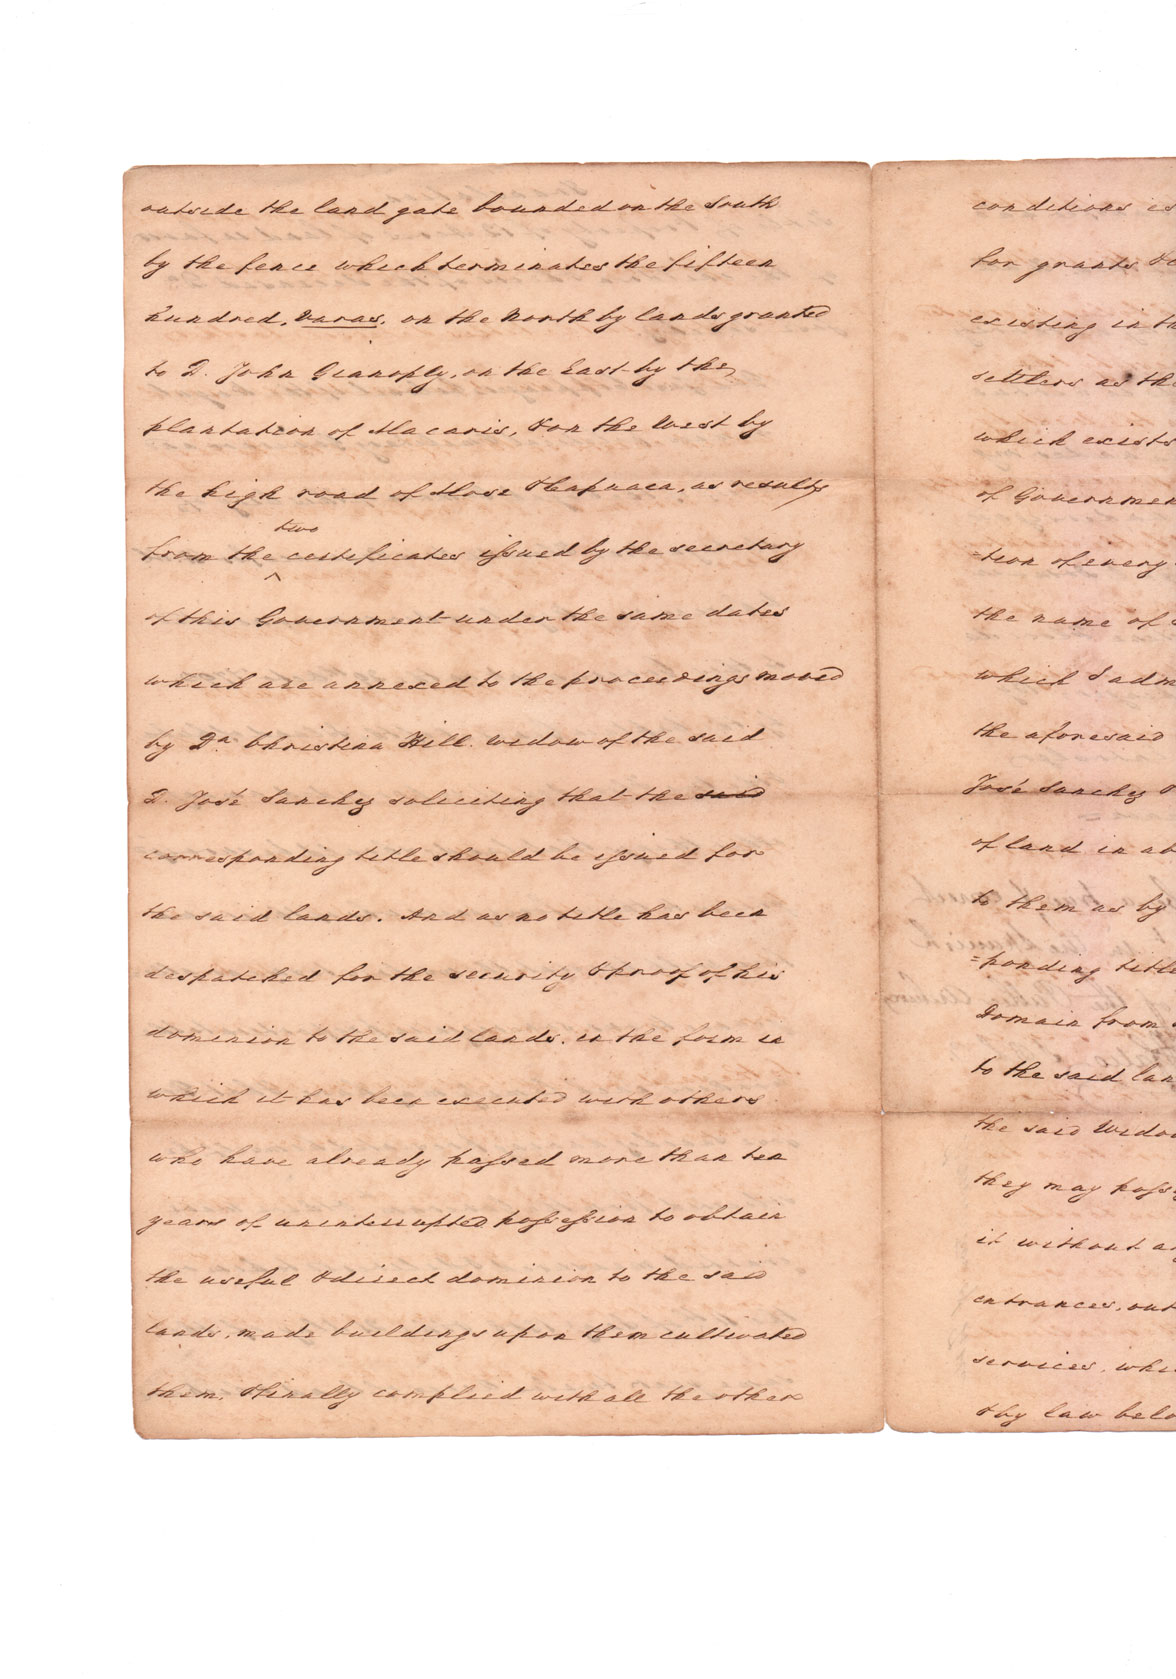 outside the land gate bounded on the South
by the fence which terminates the fifteen
hundred, varas, on the North by lands granted
to D. John Gianoply, on the East by the
plantation of Macaris, & on the West by
the high road of Mose & Capuaca, as results
two
from the ^ certificates issued by the secretary
of this Government under the same dates
which are annexed to the proceedings moved
by Da. Christina Hill widow of the said
D. José Sanchez soliciting that the said
corresponding title should be issued for
the said lands. And as no title has been
despatched for the security & proof of his
dominion to the said lands, in the form in
which it has been executed with others
who have already passed more than ten
years of uninterrupted possession to obtain
the useful & direct dominion to the said
lands, made buildings upon them cultivated
them, & finally complied with all the other
conditions es
for grants &c
existing in th
settlers as the
which exists
of Governmen
-tion of every
the name of
which I adm
the aforesaid
José Sanchez
of land in ab
to them as by
=ponding title
Domain from
to the said lan
the said Wido
they may poss
it without a
entrances, out
services, whi
& by law belo